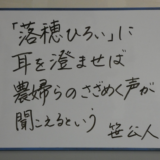 「落穂ひろい」に
耳を澄ませば
農婦らのさざめく声が
聞こえるという
笹公人